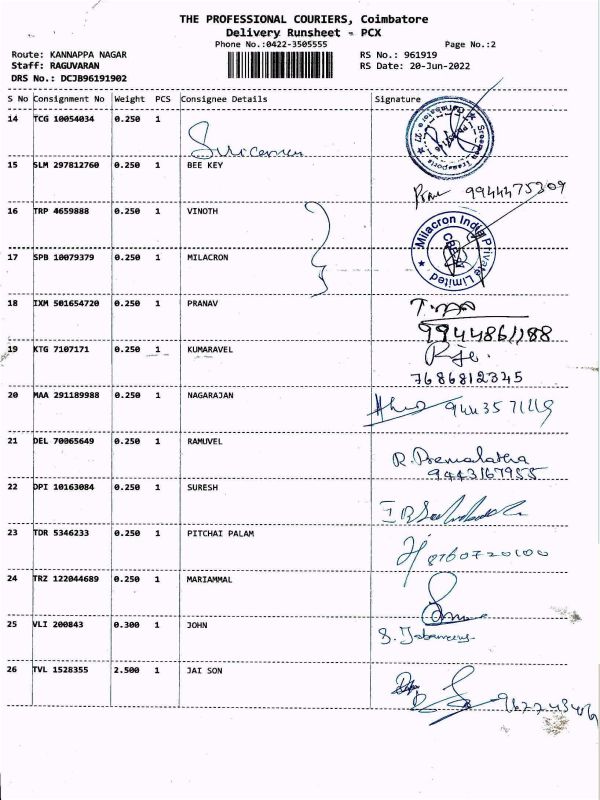 THE PROFESSIONAL COURIERS, Coimbatore
Delivery Runsheet - PCX
Phone No.:0422-3505555 Page No.:2
Route: KANNAPPA NAGAR RS No.: 961919
Staff: RAGUVARAN RS Date: 20-Jun-2022
DRS No.: DCJB96191902
S No Consignment No Weight PCS Consignee Details Signature
14 TCG 10054034 0.250 1
15 SLM 297812760 0.250 1 BEE KEY
9944475309
16 TRP 4659888 0.250 1 VINOTH
Milacron India Private Limited
17 SPB 10079379 0.250 1 MILACRON
18 IXM 501654720 0.250 1 PRANAV
9944861188
19 KTG 7107171 0.250 1 KUMARAVEL
7686812345
20 MAA 291189988 0.250 1 NAGARAJAN
21 DEL 70065649 0.250 1 RAMUVEL
R. Premalatha
9443167955
22 DPI 10163084 0.250 1 SURESH
23 TDR 5346233 0.250 1 PITCHAI PALAM
8760720100
24 TRZ 122044689 0.250 1 MARIAMMAL
25 VLI 200843 0.300 1 JOHN
26 TVL 1528355 2.500 1 JAI SON